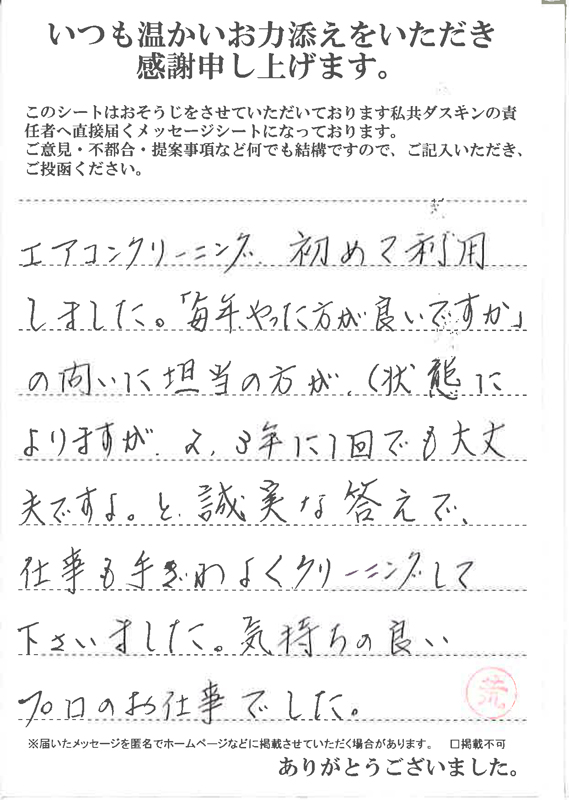 いつも温かいお力添えをいただき
感謝申し上げます。
このシートはおそうじをさせていただいております私共ダスキンの責
任者へ直接届くメッセージシートになっております。
ご意見・不都合・提案事項など何でも結構ですので、ご記入いただき、
ご投函ください。
エアコンクリーニング、初めて利用
しました。「毎年やった方が良いですか」
の問いに担当の方が、(状態に
よりますが、2、3年に1回でも大丈
夫ですよ。と、誠実な答えで、
仕事も手ぎわよくクリーニングして
下さいました。気持ちの良い
プロのお仕事でした。
荒
※届いたメッセージを匿名でホームページなどに掲載させていただく場合があります。 □掲載不可
ありがとうございました。